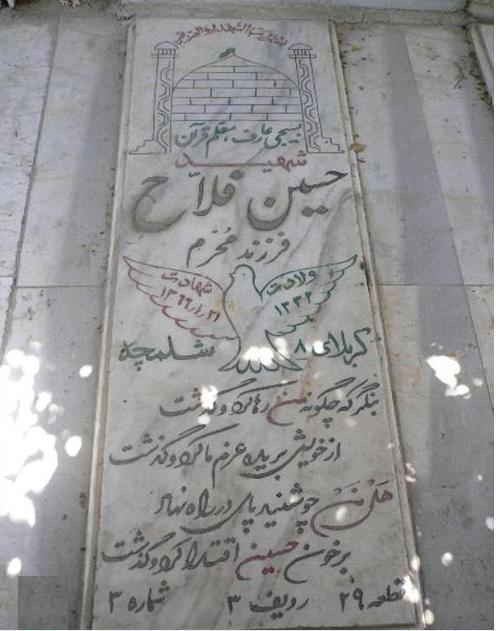 بسیجی عارف، معلم قرآن
شهید
حسین فلاّح
فرزند مُحَرم
ولادت
۱۳۳۲
شهادت
۱۳۶۶/۱/۲۱
کربلای ۸
شلمچه
بنگر که چگونه من رها کرد و گذشت
از خویش برید، عزم ما کرد و گذشت
هَل مَن چو شنید پای در راه نهاد
بر خون حسین اقتدا کرد و گذشت
قطعه ۲۹ ردیف ۳ شماره ۳